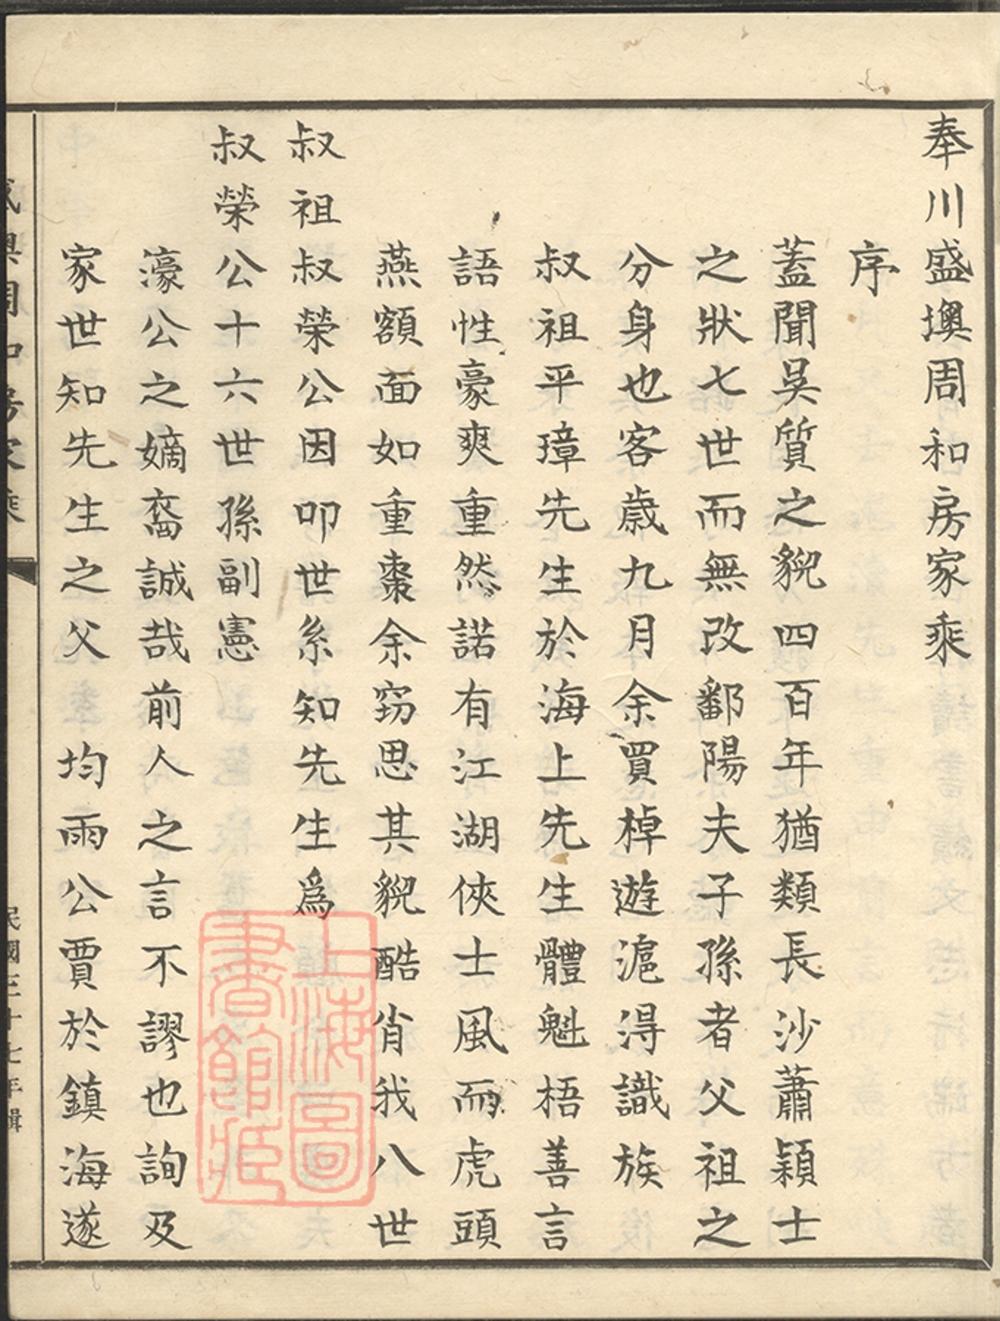 奉川盛墺周和房家乘
序
蓋聞吳質之貌四百年猶類長沙蕭穎士
之狀七世而無改鄱陽夫子孫者父祖之
分身也客歲九月余買棹遊滬得識族
叔祖平璋先生於海上先生體魁梧善言
語性豪爽重然諾有江湖俠士風而虎頭
燕額面如重棗余竊思其貌酷肖我八世
叔祖叔榮公因叩世系知先生爲
叔榮公十六世孫副憲
濠公之嫡裔誠哉前人之言不謬也詢及
家世知先生之父均雨公賈於鎮海遂
周和房家乘
民國三十七年輯
上海圖書館藏